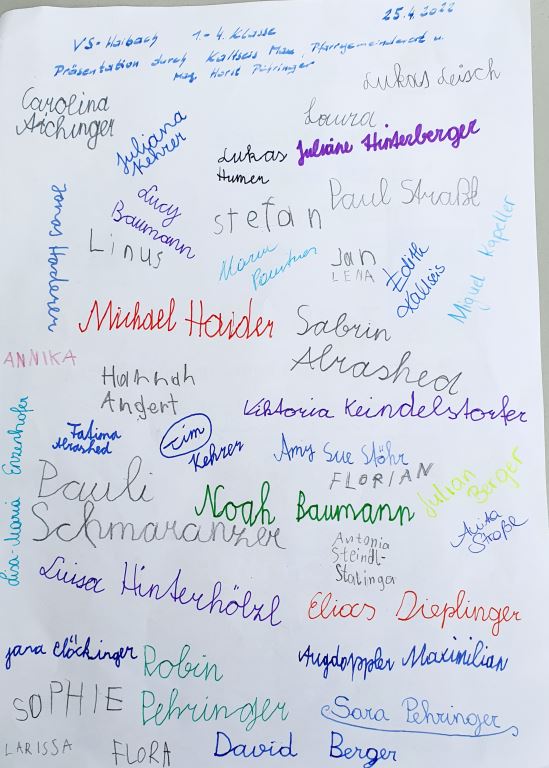 25.4.2022
VS-Haibach 1.-4. Klasse
Präsentation durch Kaltseis Max, Pfarrgemeinderat u.
Mag. Horst Pühringer
Lukas Leisch
Carolina
Aichinger
Juliana
Kehrer
Laura
Lukas
Humer
Juliane Hinterberger
Lucy
Baumann
Paul Straßl
Jonas
stefan
Linus
Jan
LENA
Edith
Kaltseis
Miguel Kapeller
Michael Haider
Sabrin
Alrashed
ANNIKA
Hannah
Angert
Viktoria Keindelstorfer
Lisa-Maria Enzenhofer
Fatima
Alrashed
Tim
Kehrer
Amy Sue Stöhr
FLORIAN
Julian
Berger
Pauli
Schmaranzer
Noah Baumann
Anita
Straßl
Antonia
Steindl-
Statinga
Luisa Hinterhölzl
Elias Dieplinger
jana Glöckinger
Robin
Pehringer
Augdoppler Maximilian
SOPHIE
Sara Pehringer
LARISSA
FLORA
David Berger